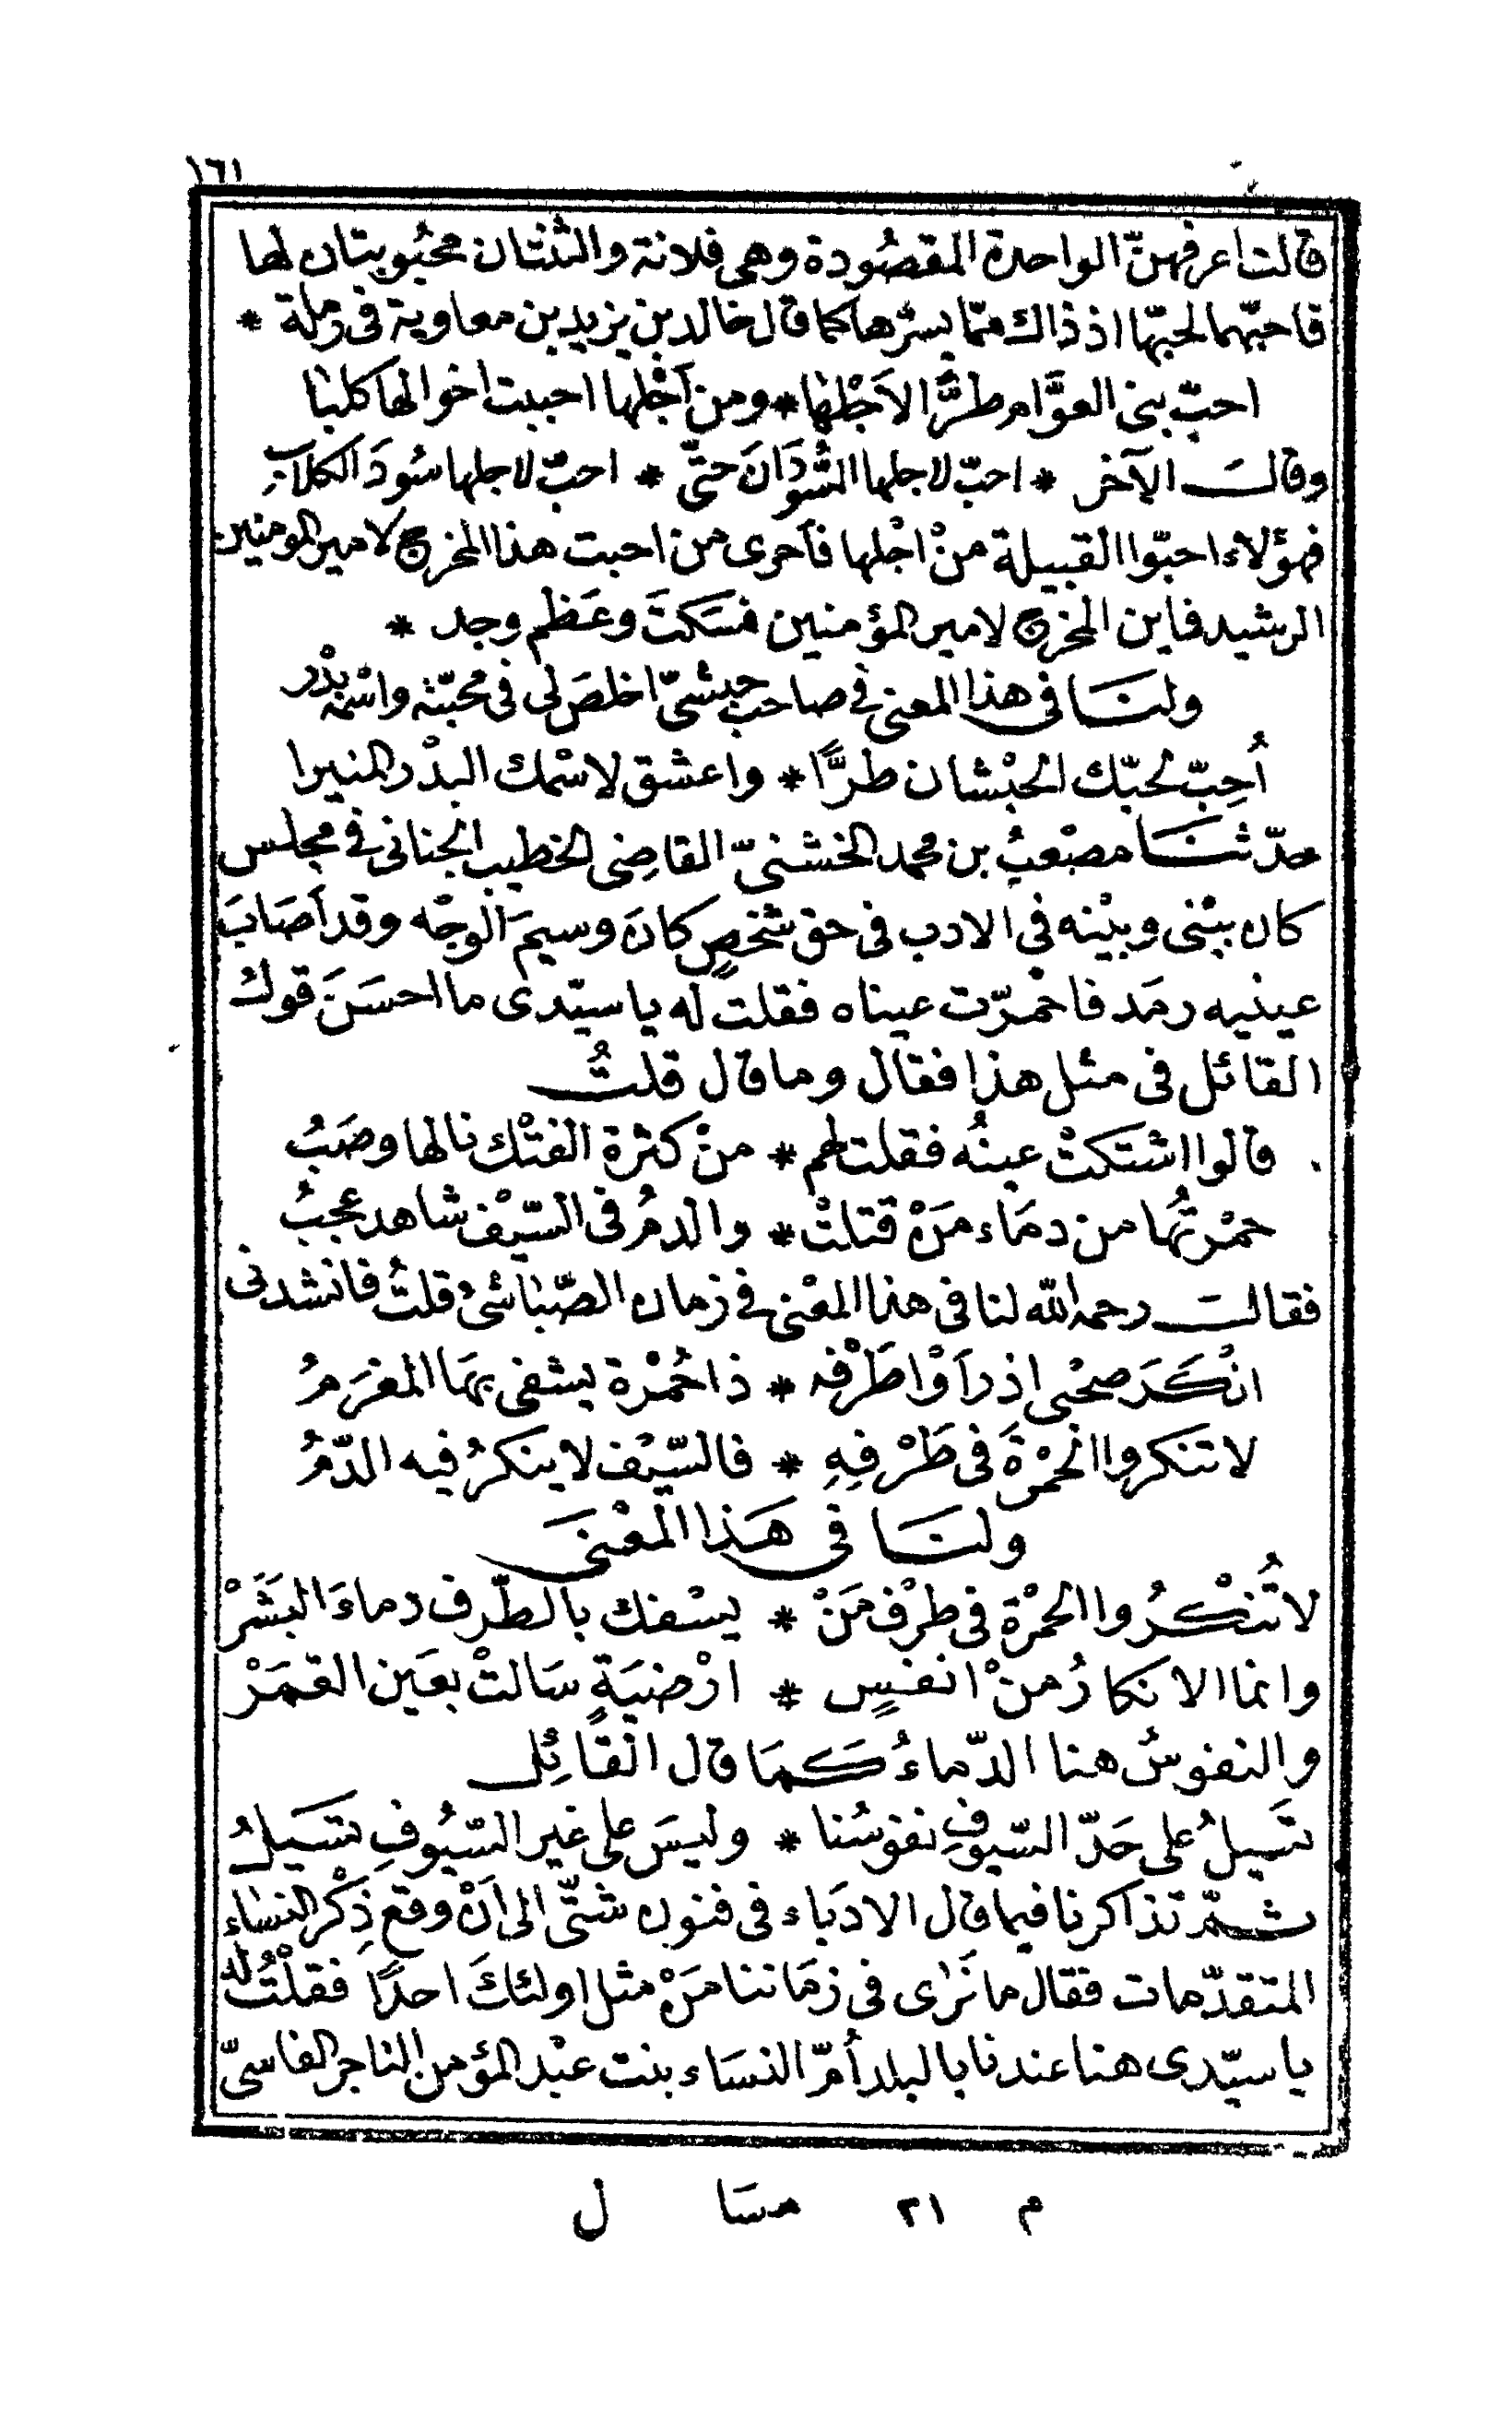 ١٦١
قالت اعرفهنّ الواحدة المقصُودة وهى فلانة والثنتان محبُوبتان لها
فاحبّهما لحبّها اذ ذاك ممّا يسرّها كما قال خالد بن يزيد بن معاوية فى رملة *
احبّ بنى العوّام طرًّا لاَجْلها * ومن اَجْلها احببت اخوالها كلبا
وقالـَــ الآخر * احبّ لاجلها السُّودَانَ حتّى * احبّ لاجلها سُودَ الكلابِ
فهؤلاء احبّوا القبيلة منْ اجْلها فأحرى من احبت هذا المخرج لامير المومنين
الرشيد فاين المخرج لامير المؤمنين فسَكتَ وعَظم وجد *
ولنـَـا فى هذا المعنى فى صاحب حبشىّ اخلصَ لى فى محبّته واسْمه بدْر
أُحِبّ لحبّك الحبْشان طرًّا * واعشق لاسْمك البدْر المنيرا
حدّثنـَـا مصْعبُ بن محمد الخشنىّ القاضِى الخطيب الجنانى فى مجلس
كان بيْنى وبيْنه فى الادب فى حق شخصٍ كانَ وسيمَ الوجْه وقد اَصَابَ
عينيه رمَد فاحْمرّت عيناه فقلت له يا سيّدى ما احسَنَ قول
القائل فى مثل هذا فقال وما قال قلتُ
قالوا اشتكتْ عينُه فقلت لهم * منْ كثرة الفتْك نالها وصَبُ
حمْرتُها من دمَاء مَنْ قتلتْ * والدمُ فى السّيْف شاهد عجبُ
فقالـَــ رحمه الله لنا فى هذا المعْنى فى زمان الصّبا شئ قلتُ فانشدنى
انْكَرَ صحْبى اذ رَاَوْا طَرْفه * ذا حُمْرة يشفى بهَا المغرَمُ
لا تنكروا الحمْرةَ فى طَرْفِهِ * فالسّيْف لا ينكرُ فيه الدّمُ
ولنـَـا فى هَذا المعْنَى
لا تُنْكرُوا الحمْرة فى طرْف مَنْ * يسْفك بالطّرف دماءَ البَشَرْ
وانما الانكارُ منْ انفسٍ * ارْضيَةٍ سَالتْ بعَين القمَرْ
والنفوسُ هنا الدّماءُ كَمَا قال القَائِل
تَسيلُ على حَدّ السّيوفِ نفوسُنا * وليسَ على غير السّيُوفِ تسَيلُ
ثـمّ تذاكرنا فيما قال الادَباء فى فنون شتّى الى اَنْ وقع ذِكْر النسَاء
المتقدّمات فقال ما نَرٰى فى زمَاننا مَنْ مثل اولئكَ احدًا فقلْتُ له
يا سيّدى هنا عندنا بالبلد أُمّ النسَاء بنت عبْد المؤمن التاجر الفاسىّ
م ٢١ مسَا ل